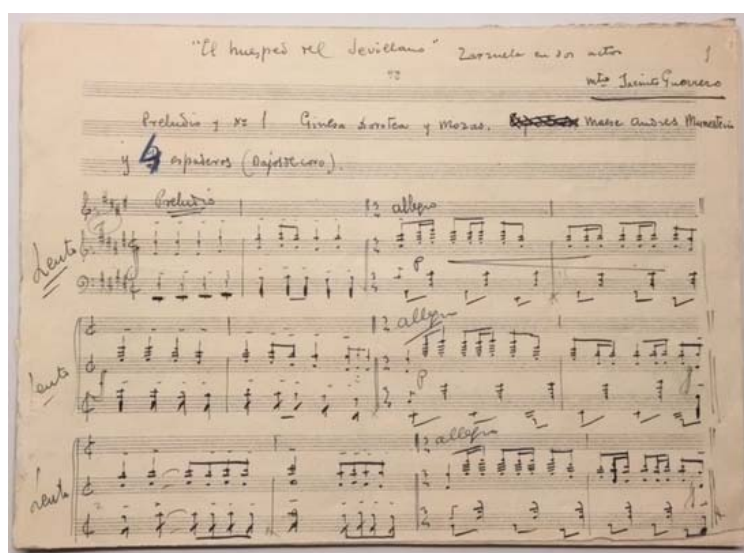 "El huesped del Sevillano" Zarzuela en dos actos 1
mtro Jacinto Guerrero
Preludio y nº 1 Ginesa Dorotea y mozas. maese andres Munesterio
y 4 espaderos (Bajos de coro).
Preludio
allegro
Lento
P
allegro
Lento
P
allegro
Lento